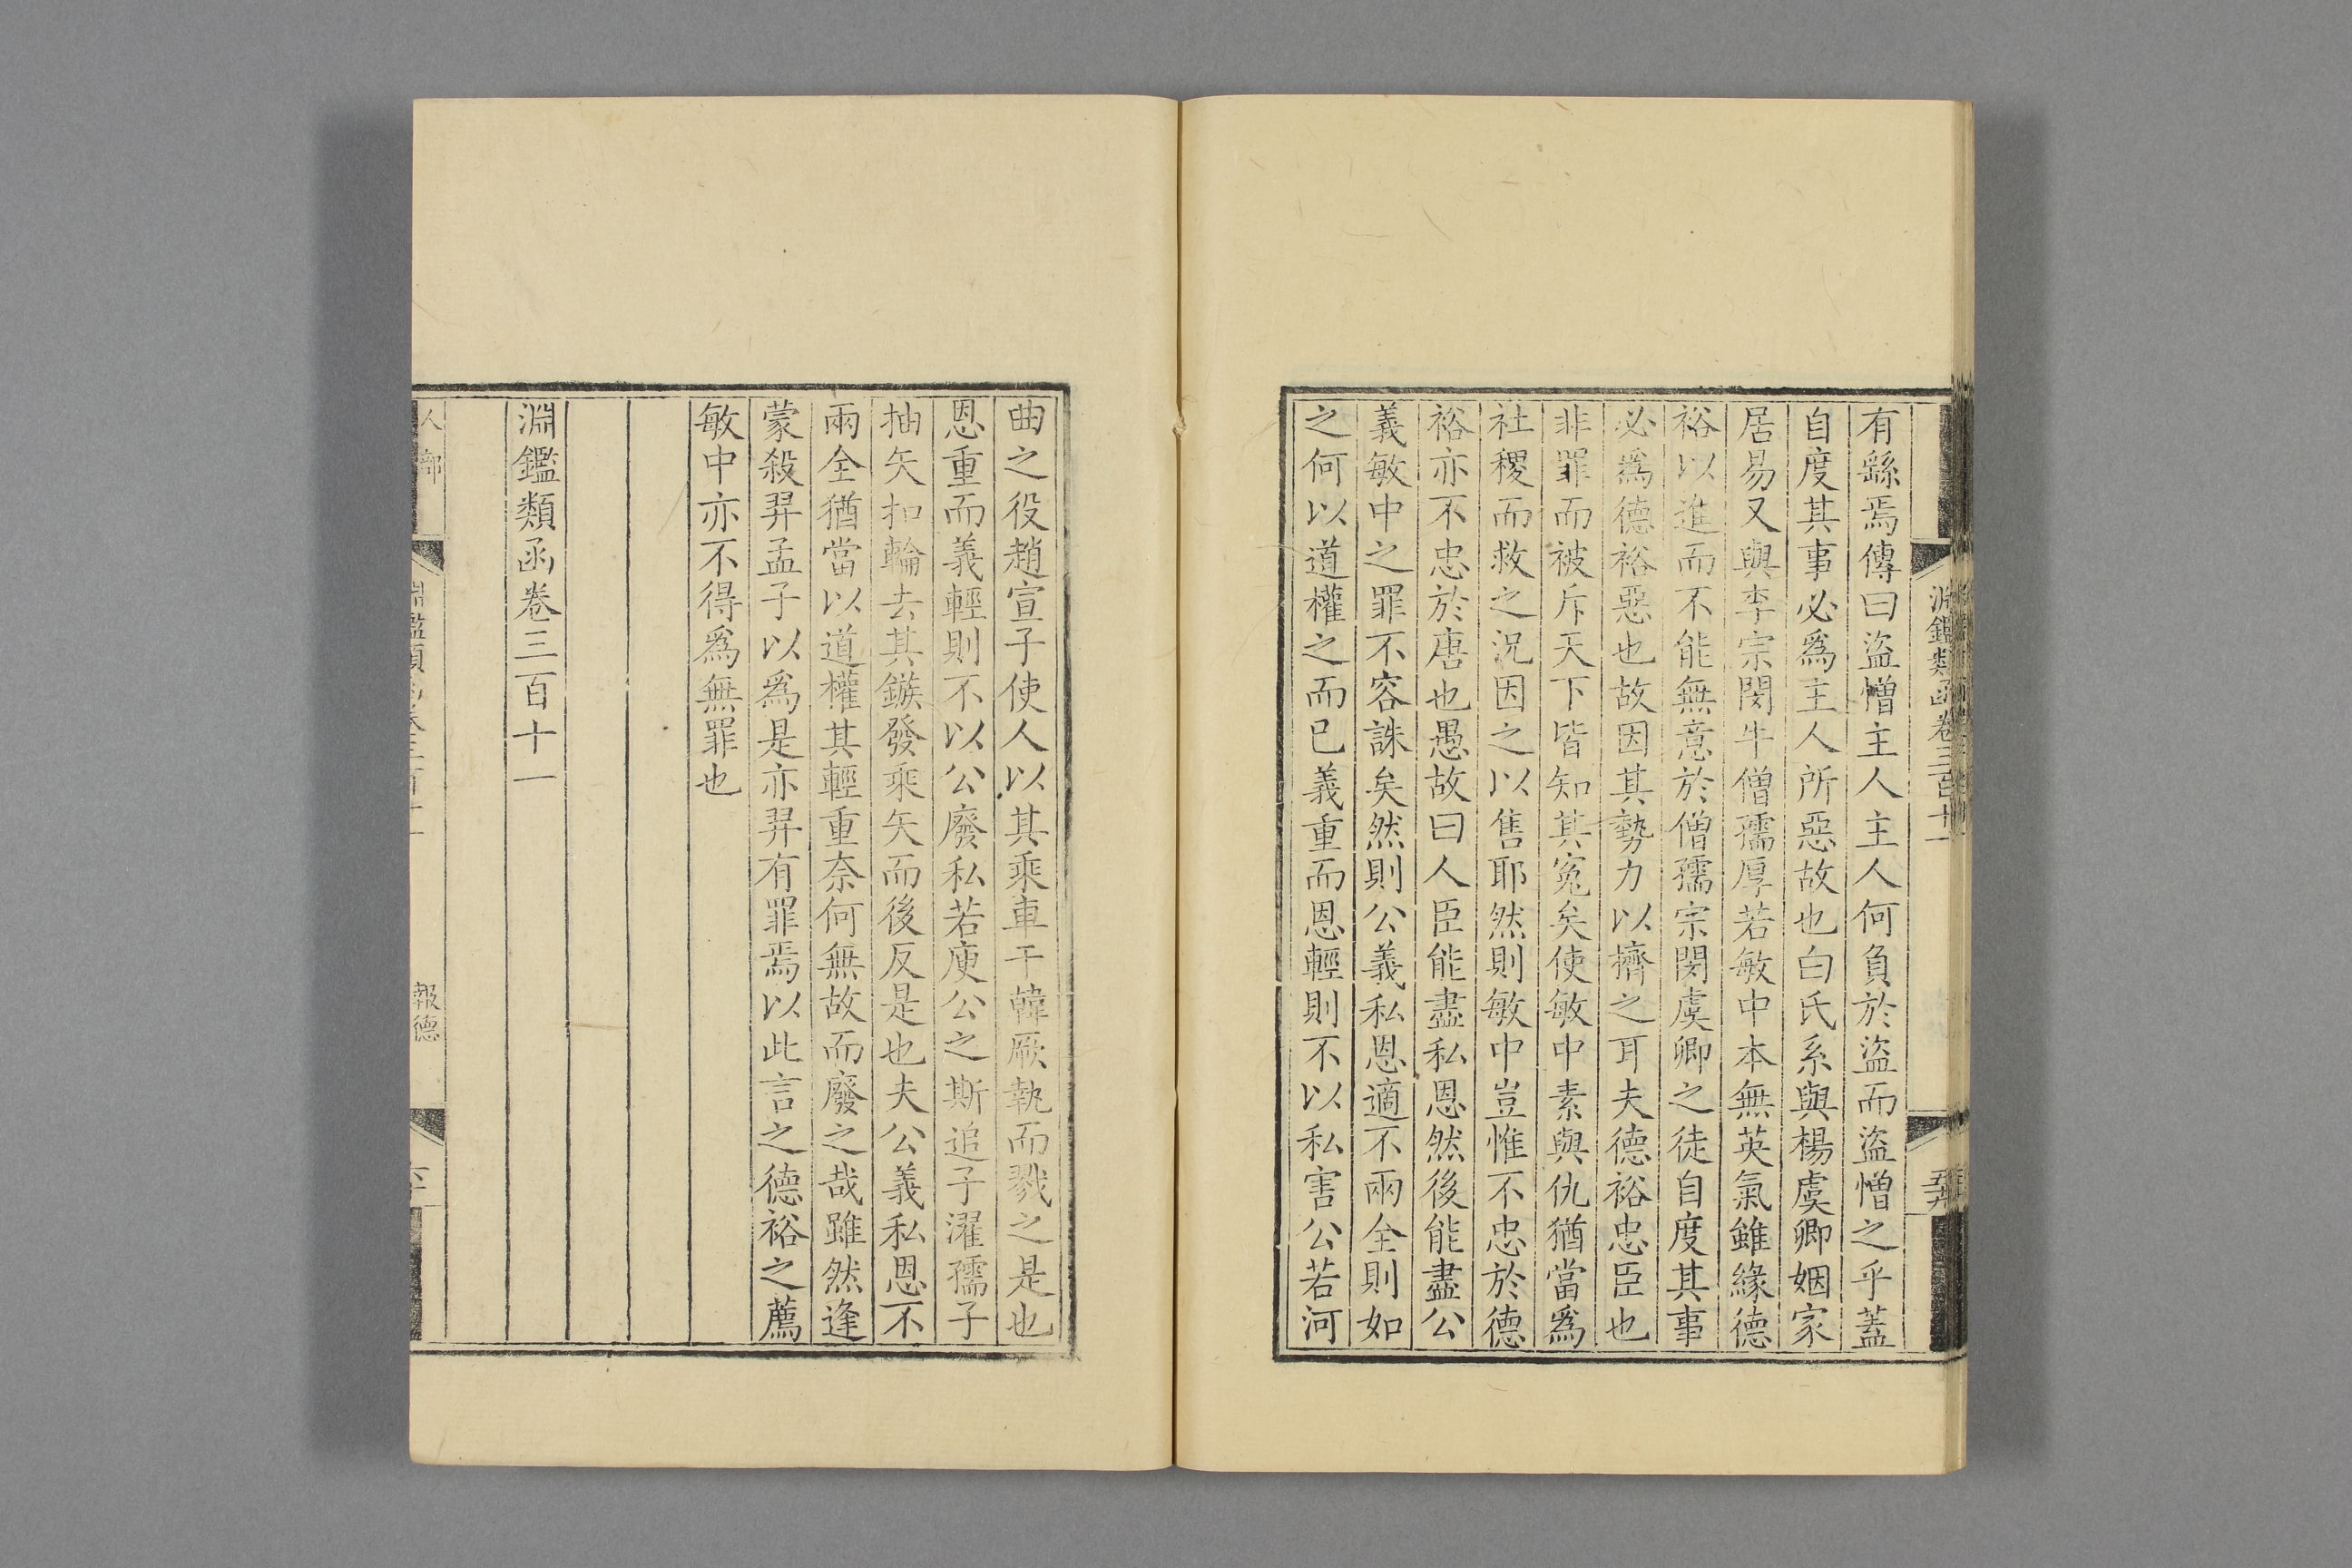 淵鑑類函卷三百十一
有繇焉傳曰盜憎主人主人何負於盜而盜憎之乎蓋
自度其事必爲主人所惡故也白氏系與楊虞卿姻家
居易又與李宗閔牛僧孺厚若敏中本無英氣雖緣德
裕以進而不能無意於僧孺宗閔虞卿之徒自度其事
必爲德裕惡也故因其勢力以擠之耳夫德裕忠臣也
非罪而被斥天下皆知其冤矣使敏中素與仇猶當爲
社稷而救之況因之以售耶然則敏中豈惟不忠於德
裕亦不忠於唐也愚故曰人臣能盡私恩然後能盡公
義敏中之罪不容誅矣然則公義私恩適不兩全則如
之何以道權之而已義重而恩輕則不以私害公若河
曲之役趙宣子使人以其乘車干韓厥執而戮之是也
恩重而義輕則不以公廢私若庾公之斯追子濯孺子
抽矢扣輪去其鏃發乘矢而後反是也夫公義私恩不
兩全猶當以道權其輕重奈何無故而廢之哉雖然逢
蒙殺羿孟子以爲是亦羿有罪焉以此言之德裕之薦
敏中亦不得爲無罪也
淵鑑類函卷三百十一
人部
報德